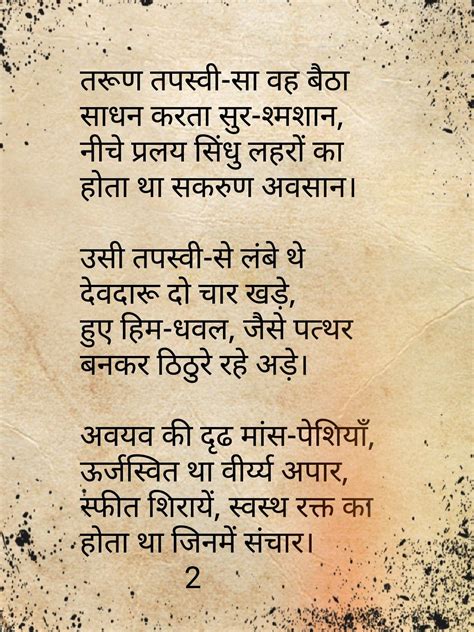 तरूण तपस्वी-सा वह बैठा
साधन करता सुर-श्मशान,
नीचे प्रलय सिंधु लहरों का
होता था सकरुण अवसान।
उसी तपस्वी-से लंबे थे
देवदारू दो चार खड़े,
हुए हिम-धवल, जैसे पत्थर
बनकर ठिठुरे रहे अड़े।
अवयव की दृढ मांस-पेशियाँ,
ऊर्जस्वित था वीर्य्य अपार,
स्फीत शिरायें, स्वस्थ रक्त का
होता था जिनमें संचार।
2